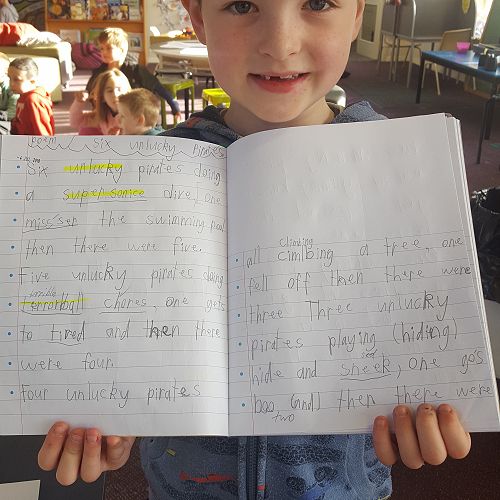 poem Six unlucky Pirates
Six unlucky pirates doing
a supersonice dive, one
misser the swimming pool
then there were five.
Five unlucky pirates doing
terrible
terrorball chores one gets
to tired and then there
were four.
four unlucky pirates
Climbing
all cimbing a tree, one
fell off then there were
three Three unlucky
pirates playing (hiding)
seek
hide and sheek, one go's
boo (and) then there were
two